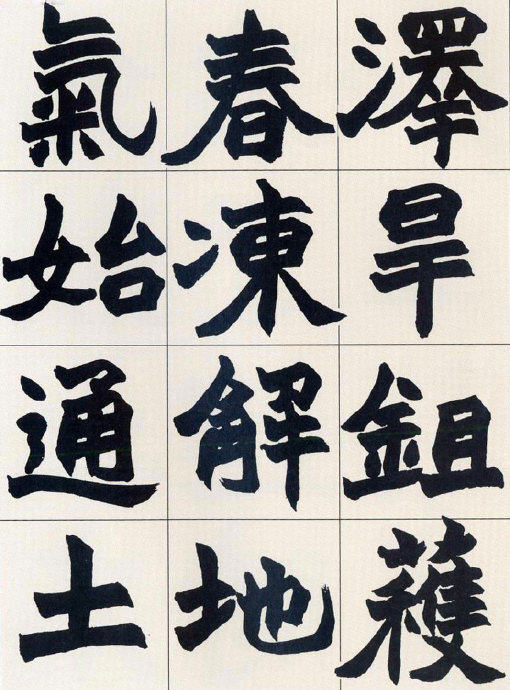 澤旱鉏穫
春凍解地
氣始通土